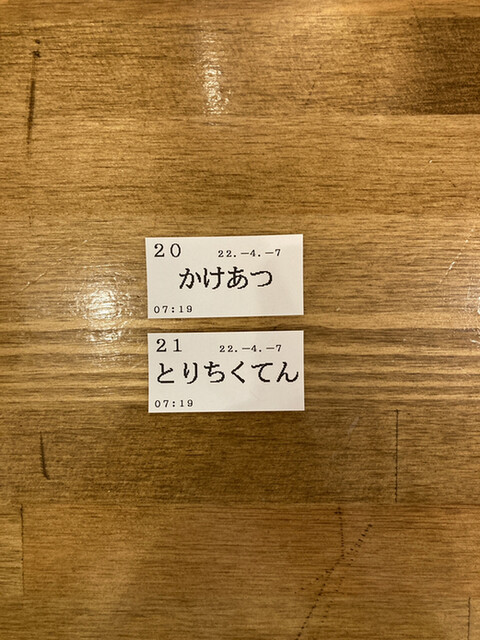 20 22.-4.-7
かけあつ
07:19
21 22.-4.-7
とりちくてん
07:19